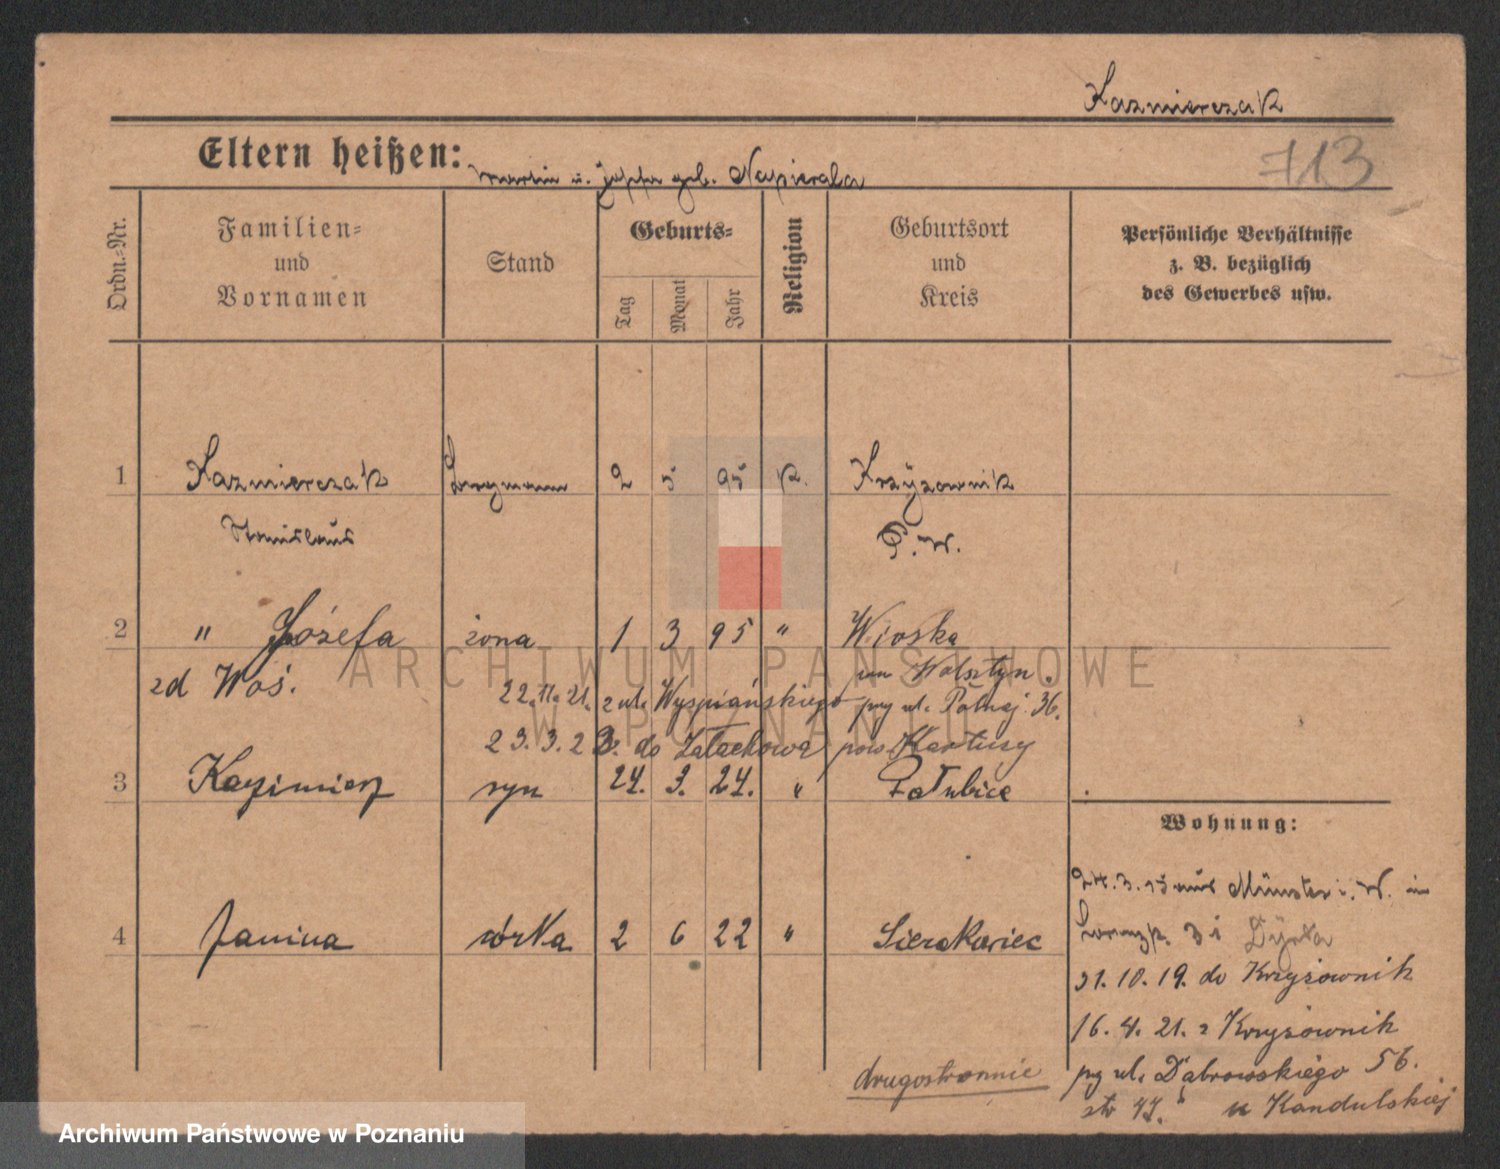 Kazmierczak
Eltern heißen: Martin u. Josefa geb. Napierala
713
Ordn.-Nr.
Familien- und Vornamen
Stand
Geburts-
Tag
Monat
Jahr
Religion
Geburtsort und Kreis
Persönliche Verhältnisse
z. B. bezüglich
des Gewerbes usw.
1 Kazmierczak 2 5 95 k. Krzyżownik
Stanislaus P. W.
2 " Józefa żona 1 3 95 " Wioska
zd Woś. Wolsztyn.
22.11.21. z ul. Wyspiańskiego przy ul. Polnej 36.
23.3.22. do pow Kartuzy
3 Kazimierz syn 24. 3. 24. " Gołubice
4 Janina córka 2 6 22 " Sierakowiec
Wohnung:
24.3.15 aus Münster i. W. in
31.10.19. do Krzyżownik
16.4.21. z Krzyżownik
przy ul. Dąbrowskiego 56.
u Kandulskiej
drugostronnie
ARCHIWUM PAŃSTWOWE
W POZNANIU
Archiwum Państwowe w Poznaniu